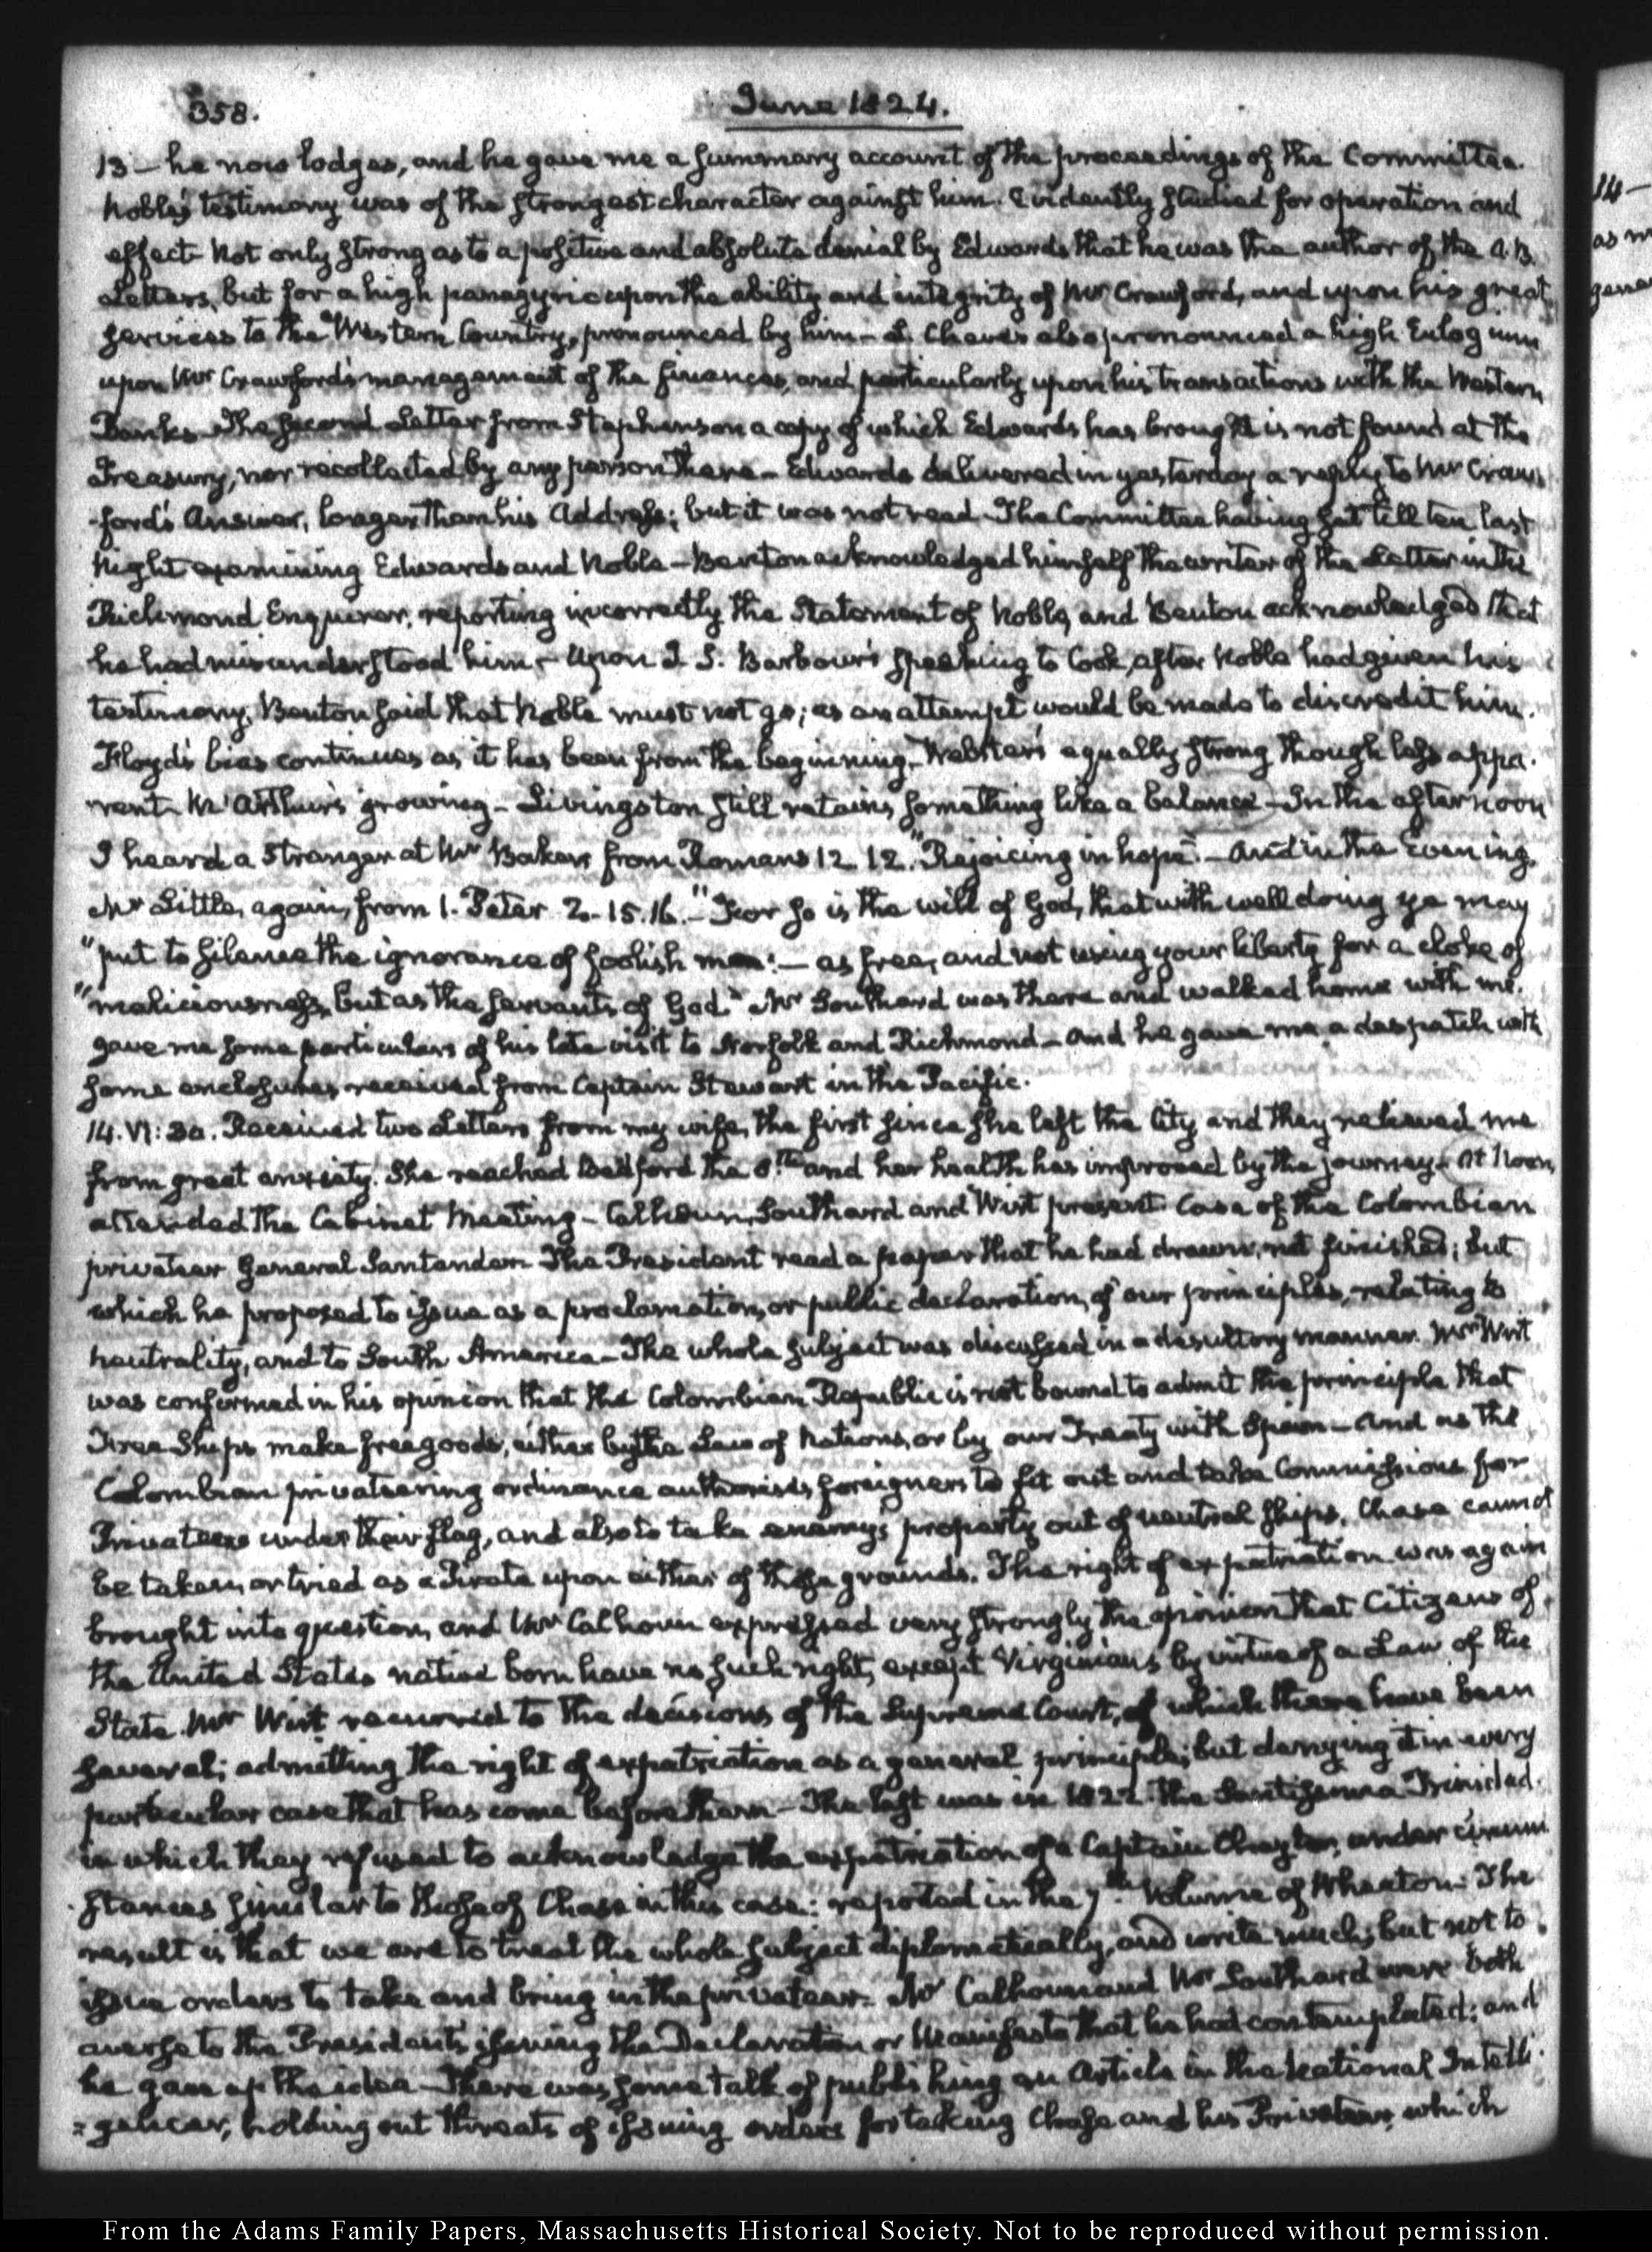 358.
June 1824.
13 — he now lodges, and he gave me a summary account of the proceedings of the Committee.
Noble's testimony was of the strongest character against him. Evidently studied for operation and
effect. Not only strong as to a positive and absolute denial by Edwards that he was the author of the A.B.
Letters, but for a high panegyric upon the ability and integrity of Mr Crawford, and upon his great
services to the Western Country, pronounced by him — L. Cheves also pronounced a high Eulogium
upon Mr Crawford's management of the finances, and particularly upon his transactions with the Western
Banks — The second Letter from Stephenson a copy of which Edwards has brought is not found at the
Treasury, nor recollected by any person there — Edwards delivered in yesterday a reply to Mr Craw-
-ford's Answer, longer than his Address; but it was not read — The Committee having sat till ten last
Night examining Edwards and Noble — Benton acknowledged himself the writer of the Letter in the
Richmond Enquirer, reporting incorrectly the Statement of Noble, and Benton acknowledged that
he had misunderstood him — Upon J. S. Barbour's speaking to Cook, after Noble had given his
testimony, Benton said that Noble must not go; as an attempt would be made to discredit him.
Floyd's bias continues as it has been from the beginning — Webster's equally strong though less appa-
rent — McArthur's growing — Livingston still retains something like a balance — In the afternoon
I heard a Stranger at Mr Baker's from Romans 12. 12. "Rejoicing in hope." — And in the Evening,
Mr Little, again, from 1. Peter 2. 15. 16. "For so is the will of God, that with well doing ye may
"put to silence the ignorance of foolish men: — as free, and not using your liberty for a cloke of
"maliciousness, but as the servants of God." Mr Southard was there and walked home with me.
gave me some particulars of his late visit to Norfolk and Richmond — and he gave me a despatch with
some enclosures received from Captain Stewart in the Pacific.
14. VI: 30. Received two Letters from my wife, the first since she left the City and they relieved me
from great anxiety. She reached Bedford the 8th and her health has improved by the journey — At Noon,
attended the Cabinet Meeting — Calhoun, Southard and Wirt present. Case of the Colombian
privateer General Santander. The President read a paper that he had drawn, not finished; but
which he proposed to issue as a proclamation, or public declaration, of our principles, relating to
neutrality, and to South America — The whole subject was discussed in a desultory manner. Mr Wirt
was confirmed in his opinion that the Colombian Republic is not bound to admit the principle that
Free Ships make free goods, either by the Law of Nations, or by our Treaty with Spain — And as the
Colombian privateering ordinance authorises foreigners to fit out and take Commissions for
Privateers under their flag, and also to take enemy's property out of neutral ships, Chase cannot
be taken, or tried as a Pirate upon either of these grounds. The right of expatriation was again
brought into question, and Mr Calhoun expressed very strongly the opinion that Citizens of
the United States native born have no such right, except Virginians by virtue of a Law of the
State. Mr Wirt recurred to the decisions of the Supreme Court, of which there have been
several; admitting the right of expatriation as a general principle; but denying it in every
particular case that has come before them — The last was in 1822 the Santissima Trinidad.
in which they refused to acknowledge the expatriation of a Captain Chaytor, under circum-
stances similar to those of Chase in this case: reported in the 7th Volume of Wheaton. The
result is that we are to treat the whole subject diplomatically, and write much; but not to
issue orders to take and bring in the privateer. Mr Calhoun and Mr Southard were both
averse to the President's issuing the Declaration or Manifesto that he had contemplated; and
he gave up the idea — There was some talk of publishing an Article in the National Intelli-
=gencer, holding out threats of issuing orders for taking Chase and his Privateer, which
14 —
From the Adams Family Papers, Massachusetts Historical Society. Not to be reproduced without permission.